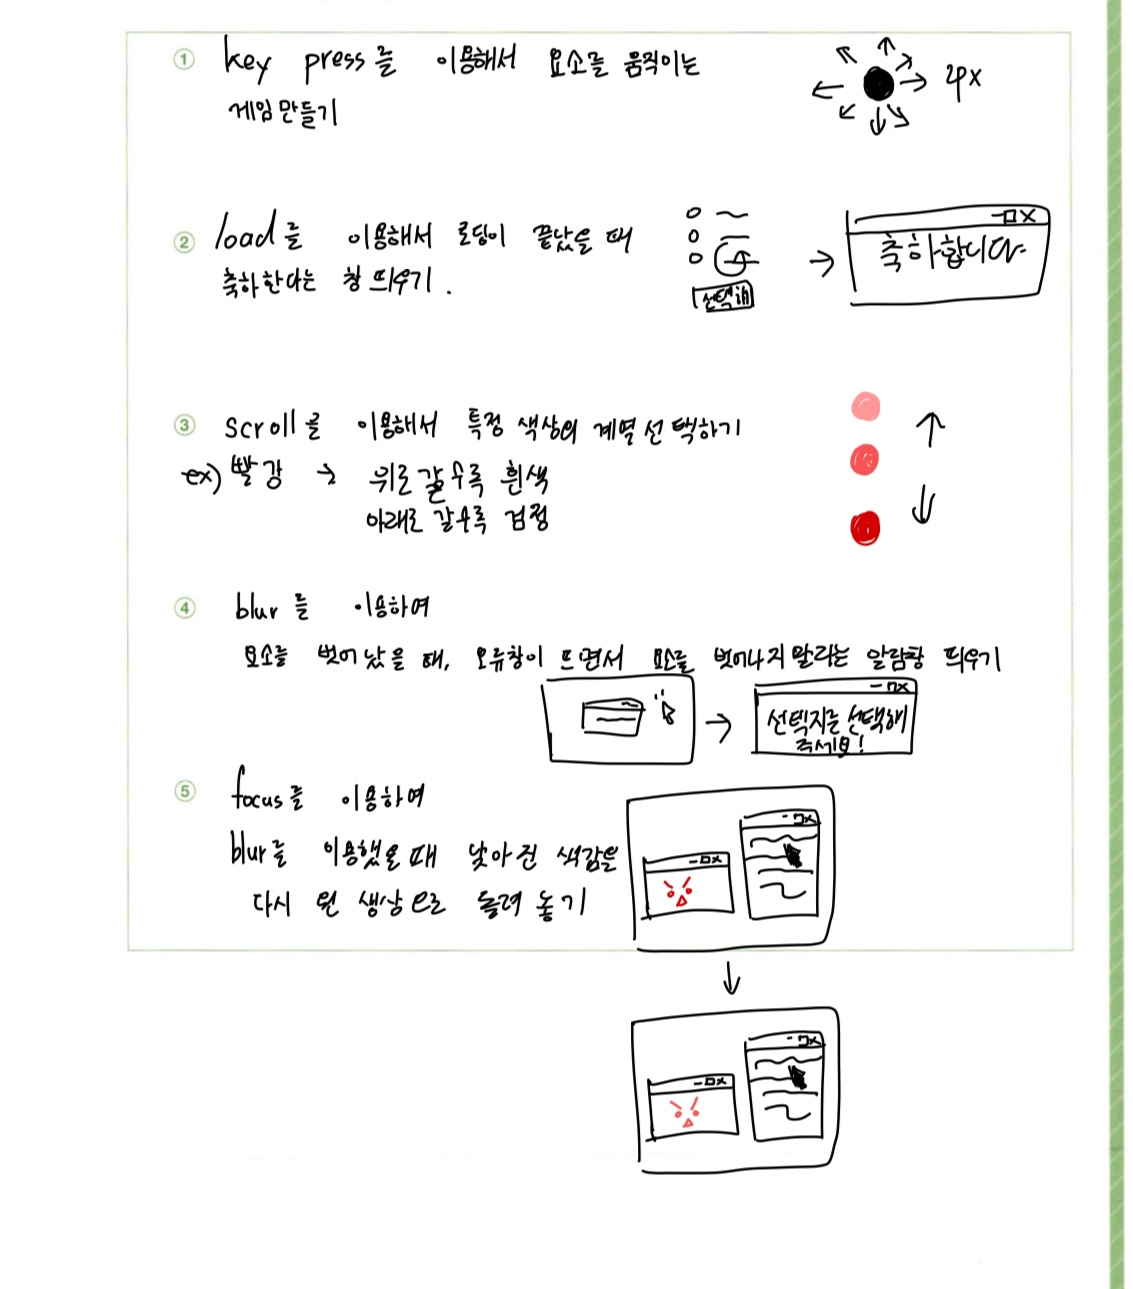 ① key press를 이용해서 요소를 움직이는
게임만들기
2px
② load를 이용해서 로딩이 끝났을 때
축하한다는 창 띄우기.
선택해
축하합니다
③ scroll를 이용해서 특정 색상의 계열선택하기
ex) 빨강 → 위로 갈수록 흰색
아래로 갈수록 검정
④ blur를 이용하여
요소를 벗어났을 때, 오류창이 뜨면서 요소를 벗어나지말라는 알람창 띄우기
선택지를 선택해
주세요!
⑤ focus를 이용하여
blur를 이용했을때 낮아진 색감을
다시 원 생상으로 돌려 놓기